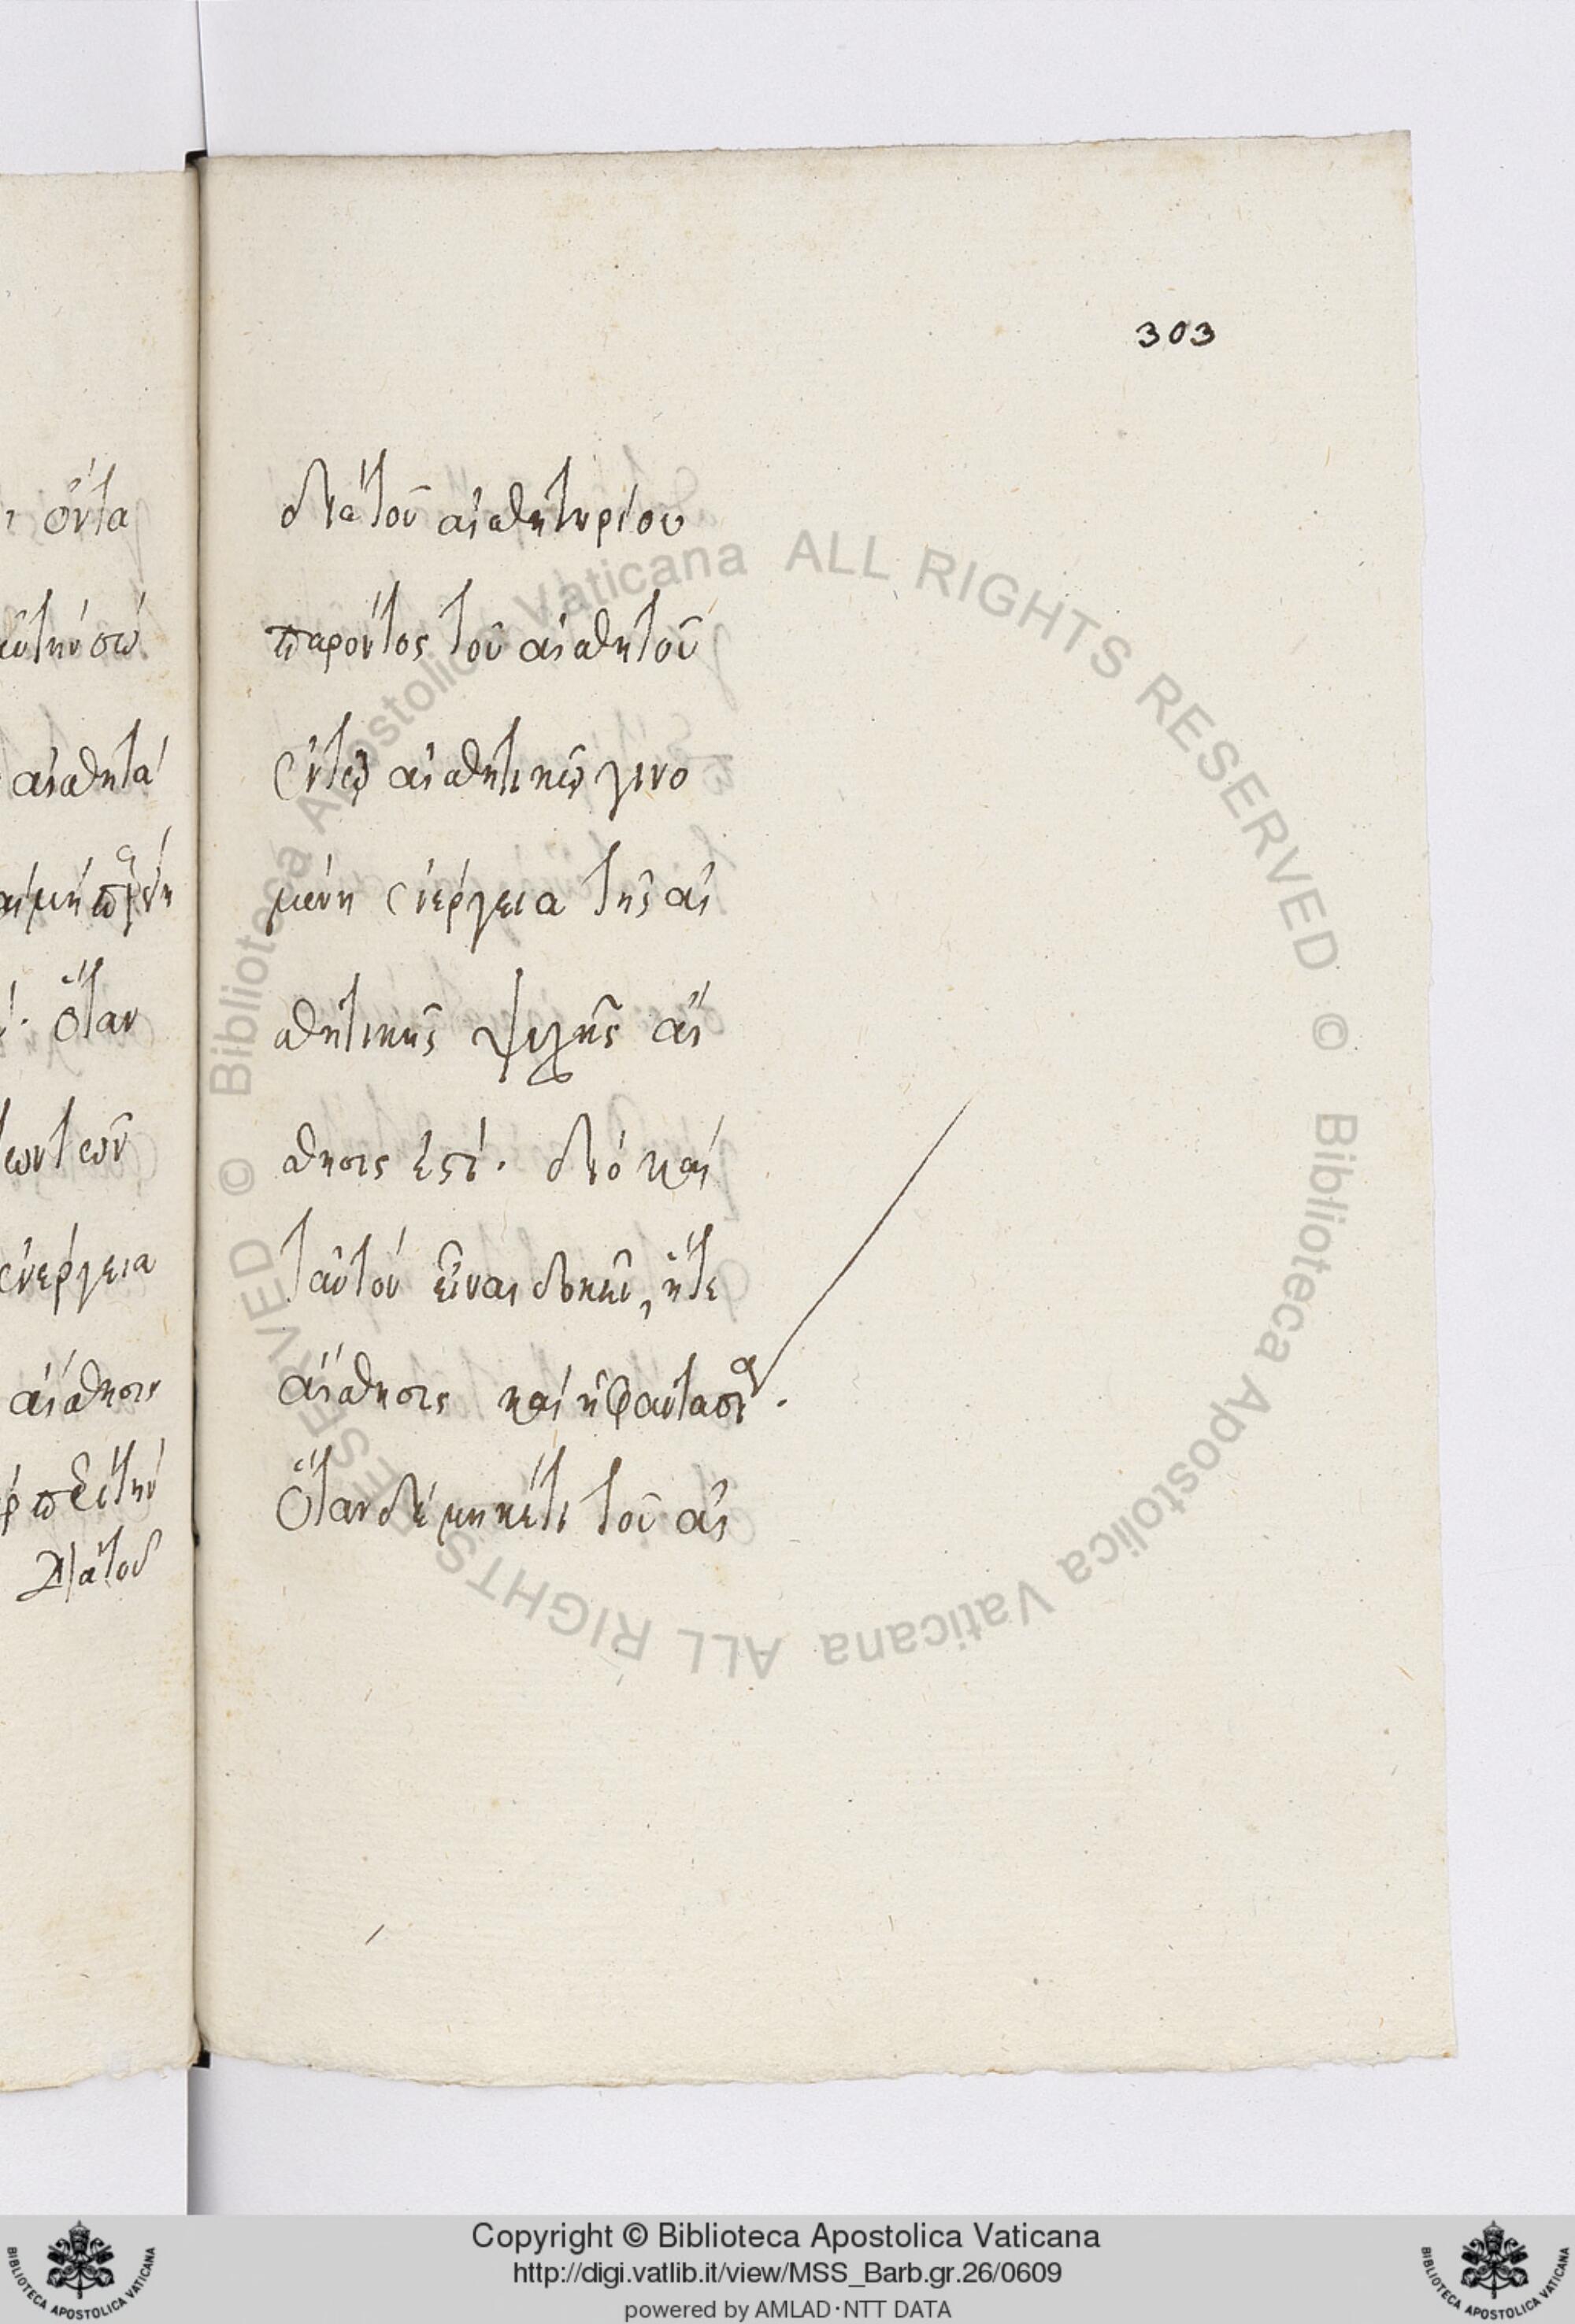 303
διὰ τοῦ αἰσθητηρίου
παρόντος τοῦ αἰσθητοῦ
ἐν τῷ αἰσθητικῷ γινο
μένη ἐνέργεια τῆς αἰ
σθητικῆς ψυχῆς αἴ
σθησις ἐστί. διὸ καὶ
ταὐτὸν εἶναι δοκεῖ, ἥτε
αἴσθησις καὶ ἡ φαντασία.
Ὅταν δὲ μηκέτι τοῦ αἰ
ὄντα
αὐτὴν
αἰσθητά
ὅταν
των τῶν
ἐνέργεια
αἴσθησιν
διὰ τοῦ
© Biblioteca Apostolica Vaticana ALL RIGHTS RESERVED © Biblioteca Apostolica Vaticana ALL RIGHTS RESERVED
Copyright © Biblioteca Apostolica Vaticana
http://digi.vatlib.it/view/MSS_Barb.gr.26/0609
powered by AMLAD·NTT DATA
BIBLIOTECA APOSTOLICA VATICANA
BIBLIOTECA APOSTOLICA VATICANA